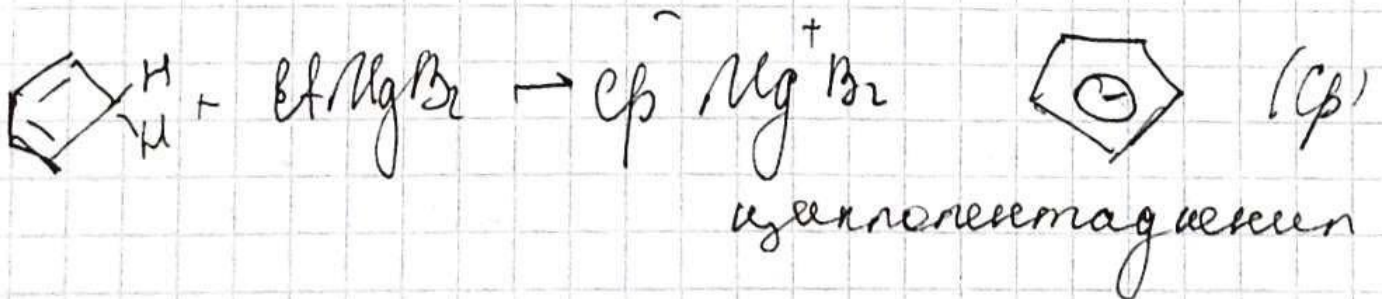 H
H
+ EtMgBr → Cp⁻ Mg⁺Br (Cp)
циклопентадиенил